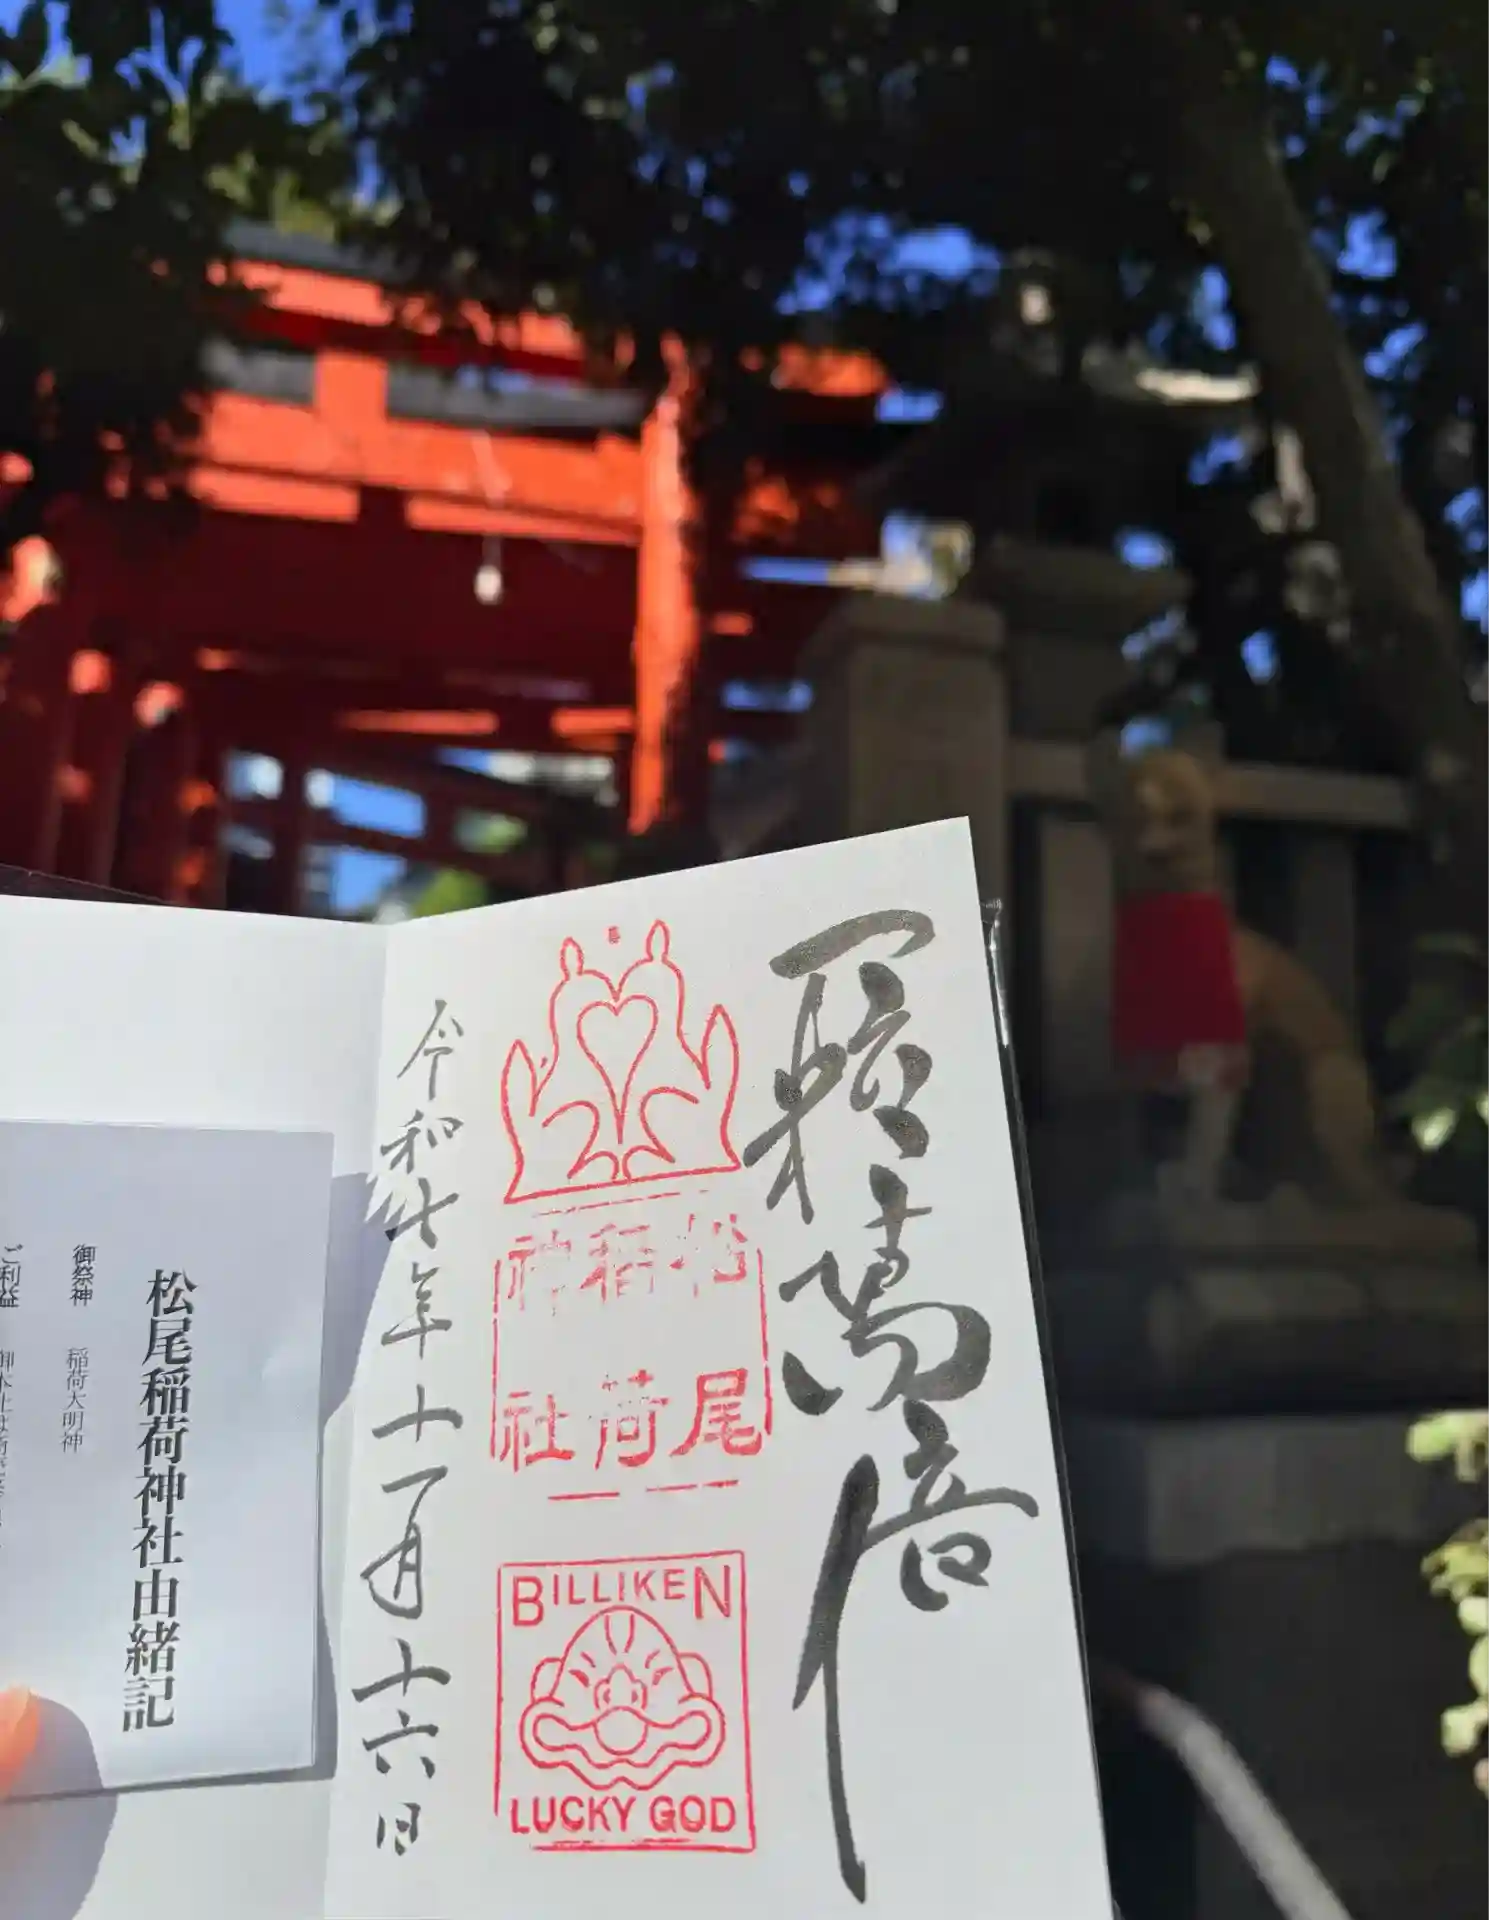 一粒萬倍
松尾
稲荷
神社
BILLIKEN
LUCKY GOD
令和七年十一月十六日
松尾稲荷神社由緒記
御祭神 稲荷大明神
ご利益